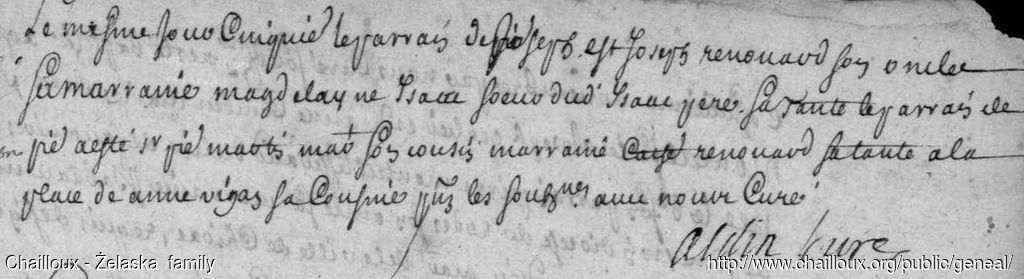 Le mesme jour Cinquie le parrain de Joseph est Joseph renouard son oncle
sa marraine magdelayne Isaac soeur dud' Isaac pere sa tante le parrain de
pié a esté sr pié matis mat son cousin marraine renouard sa tante a la
place de anne vigan sa Cousine les soubznes avec nour Curé
Curé
Chailloux - Żelaska family
http://www.chailloux.org/public/geneal/